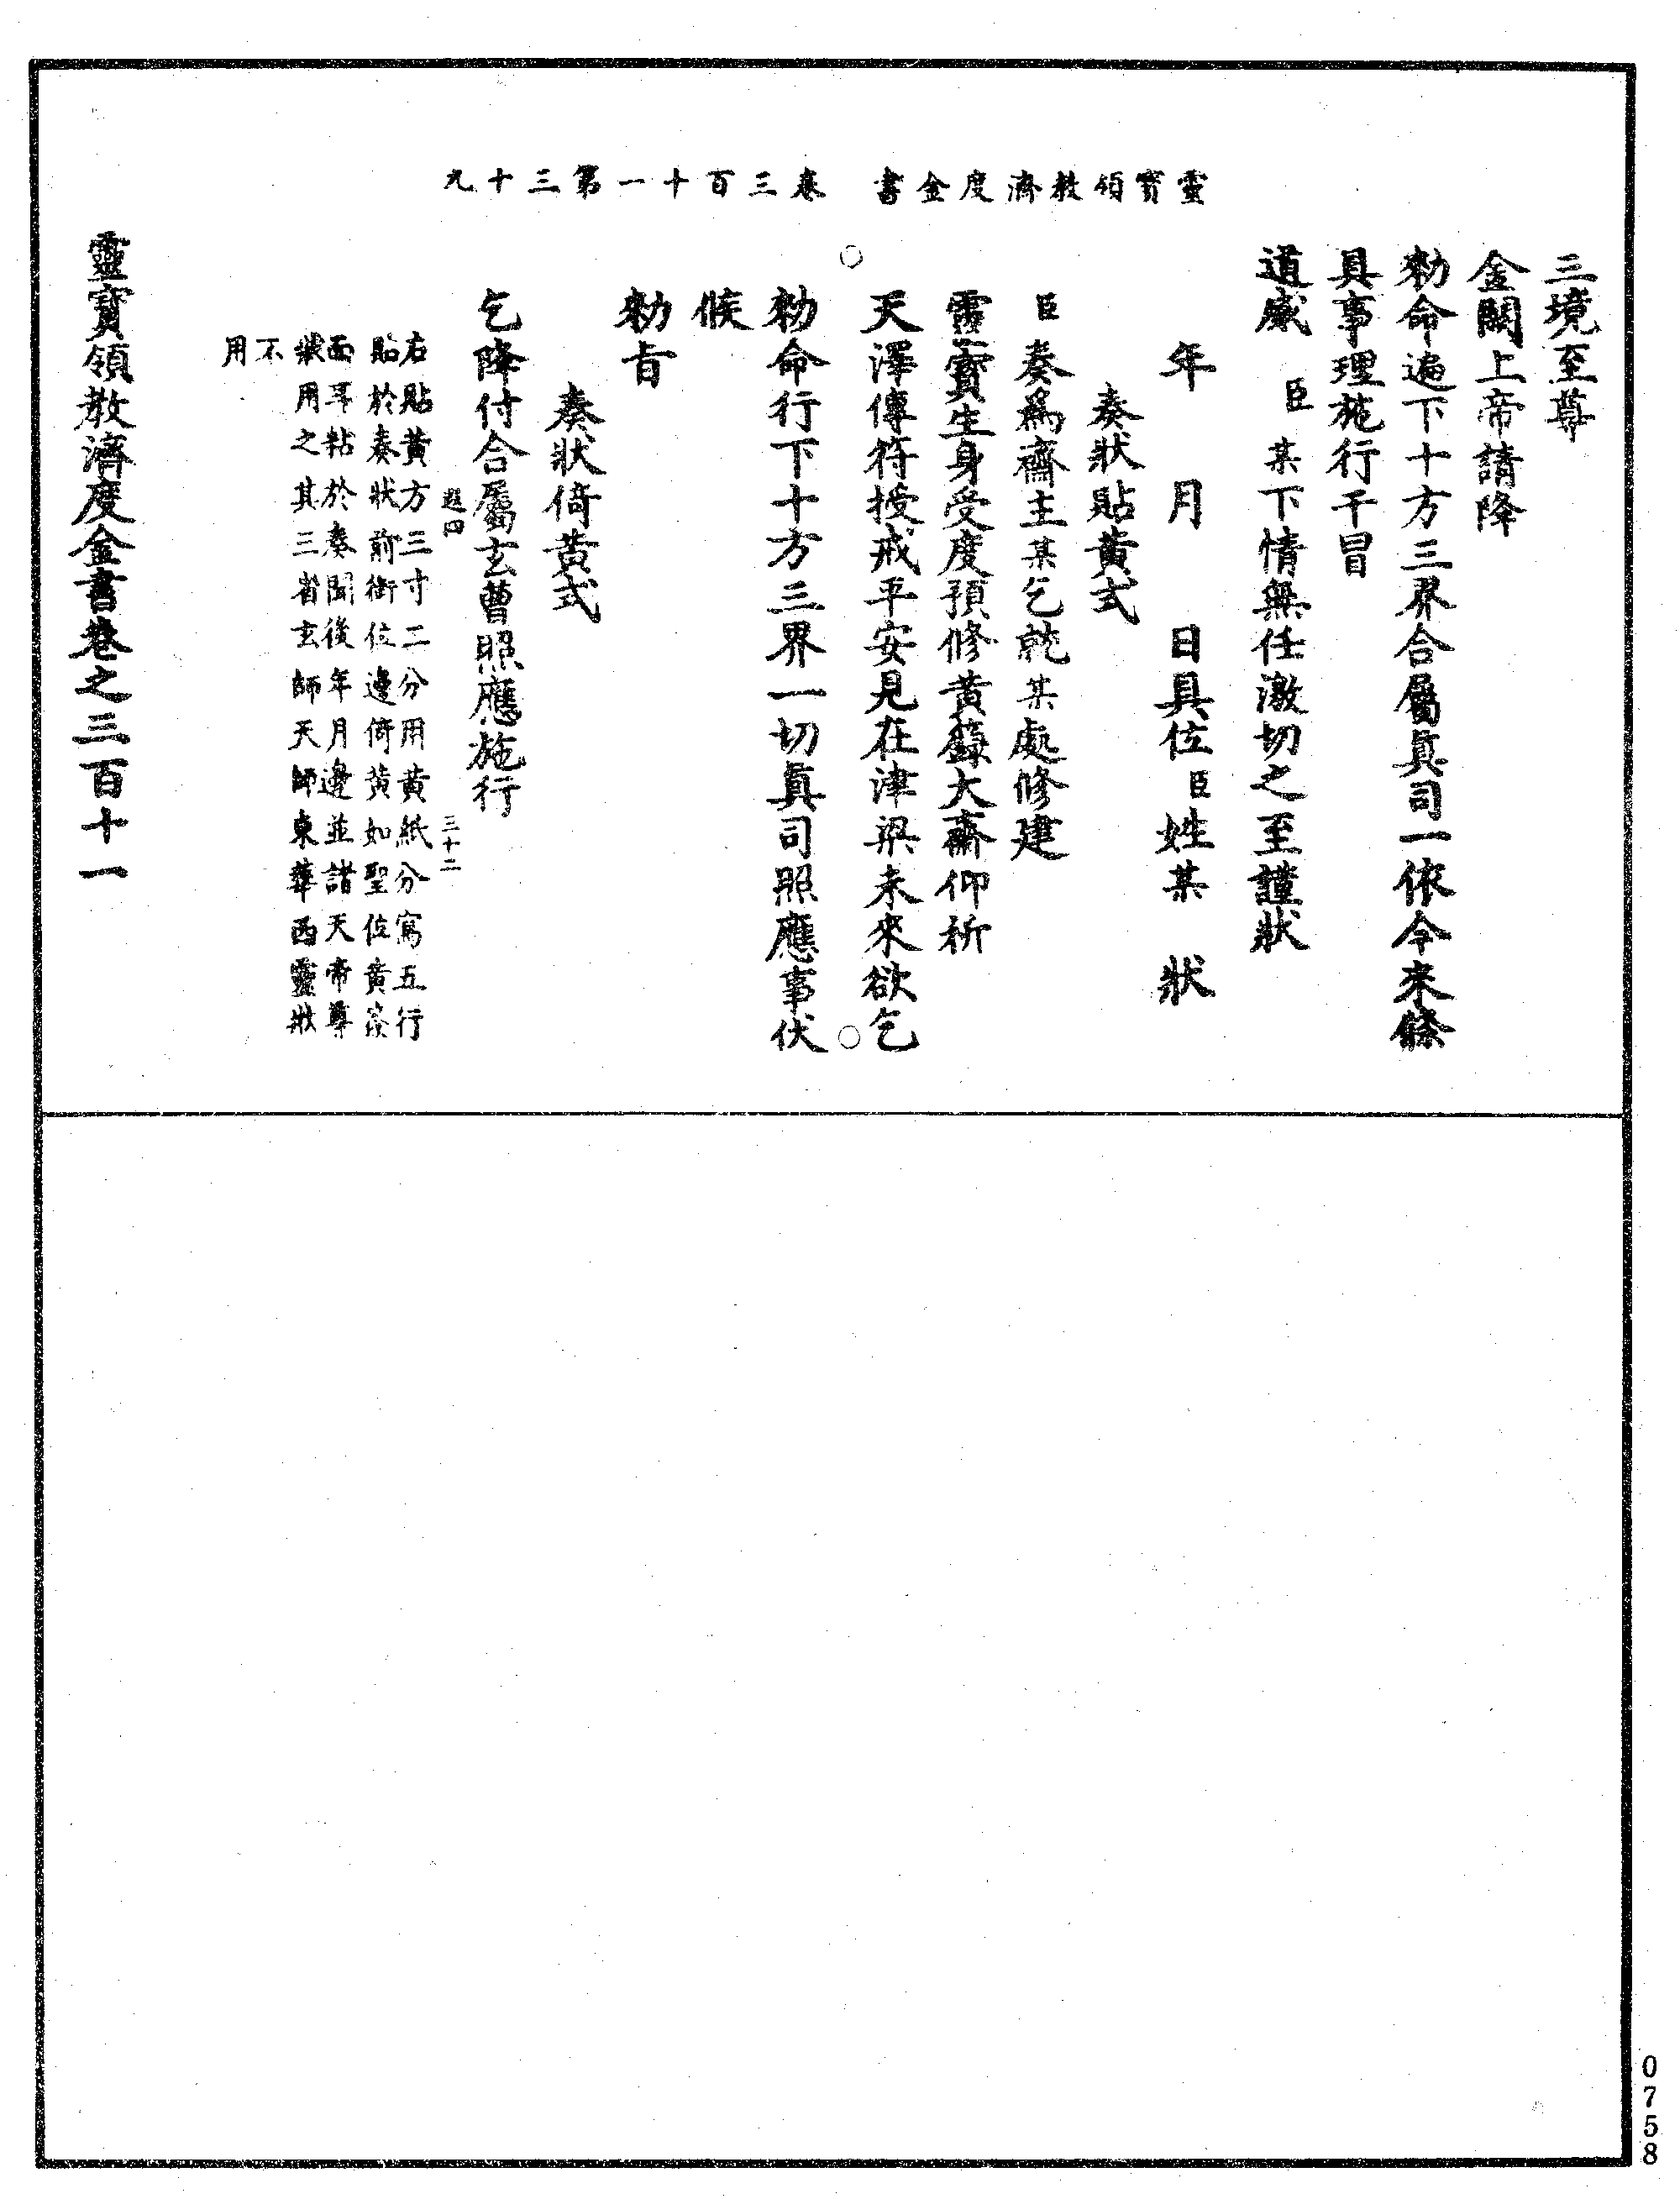 靈寶領教濟度金書　卷三百十一第三十九
三境至尊
金闕上帝請降
勑命遍下十方三界合屬真司一依今來條
具事理施行干冒
道威　臣某下情無任激切之至謹狀
年　月　日具位臣姓某　狀
奏狀貼黃式
臣奏為齋主某乞就某處修建
靈寶生身受度預修黃籙大齋仰祈
天澤傳符授戒平安見在津梁未來欲乞
勑命行下十方三界一切真司照應事伏
候
勑旨
奏狀倚黃式
乞降付合屬玄曹照應施行
三十二
右貼黃方三寸二分用黃紙分寫五行
貼於奏狀前銜位邊倚黃如聖位黃籤
面耳粘於奏聞後年月邊並諸天帝尊
狀用之其三省玄師天師東華西靈狀
不
用
靈寶領教濟度金書卷之三百十一
0758